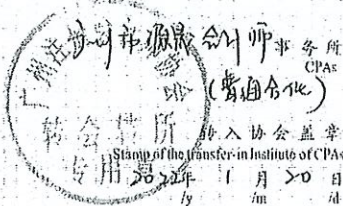 市 会计师事务所
CPAs
(普通合伙)
广州注 协会
转会转所
专用
转入协会盖章
Stamp of the transfer-in Institute of CPAs
2022年 1 月 20 日
/y /m /d